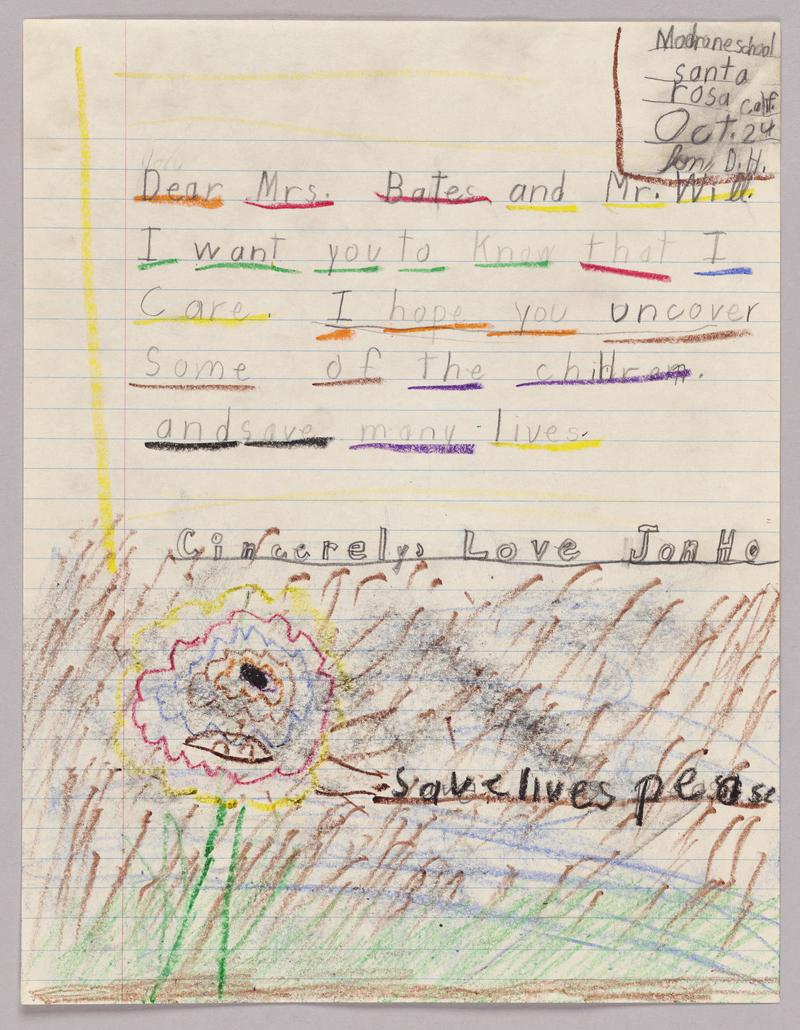 Madrone school
santa
rosa calif.
Oct. 24
D.H.
Dear Mrs. Bates and Mr. Will.
I want you to know that I
Care. I hope you uncover
Some of the children.
and save many lives.
Cincerely, Love Jon Ho
Save lives please